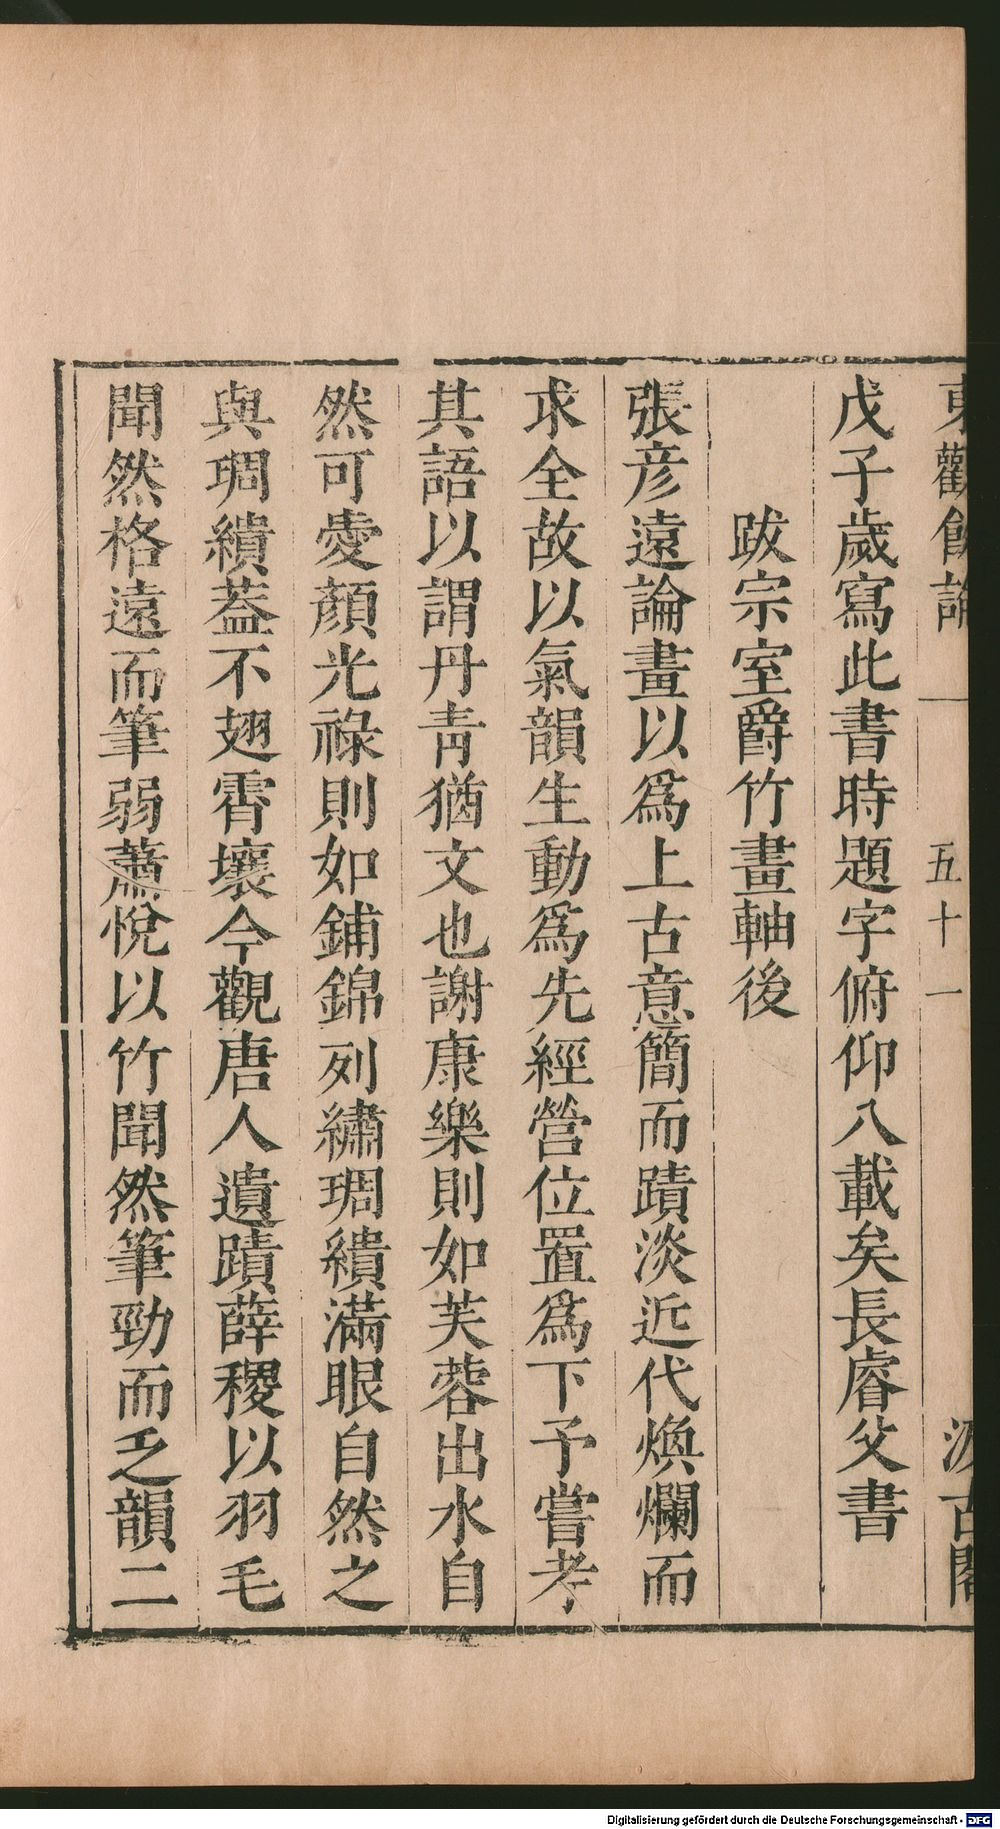 東觀餘論
五十一
汲古閣
戊子歲寫此書時題字俯仰八載矣長睿父書
跋宗室爵竹畫軸後
張彦遠論畫以爲上古意簡而蹟淡近代煥爛而
求全故以氣韻生動爲先經營位置爲下予嘗考
其語以謂丹靑猶文也謝康樂則如芙蓉出水自
然可愛顏光祿則如鋪錦列繡琱繢滿眼自然之
與琱繢葢不翅霄壤今觀唐人遺蹟薛稷以羽毛
聞然格遠而筆弱蕭悅以竹聞然筆勁而乏韻二
Digitalisierung gefördert durch die Deutsche Forschungsgemeinschaft - DFG